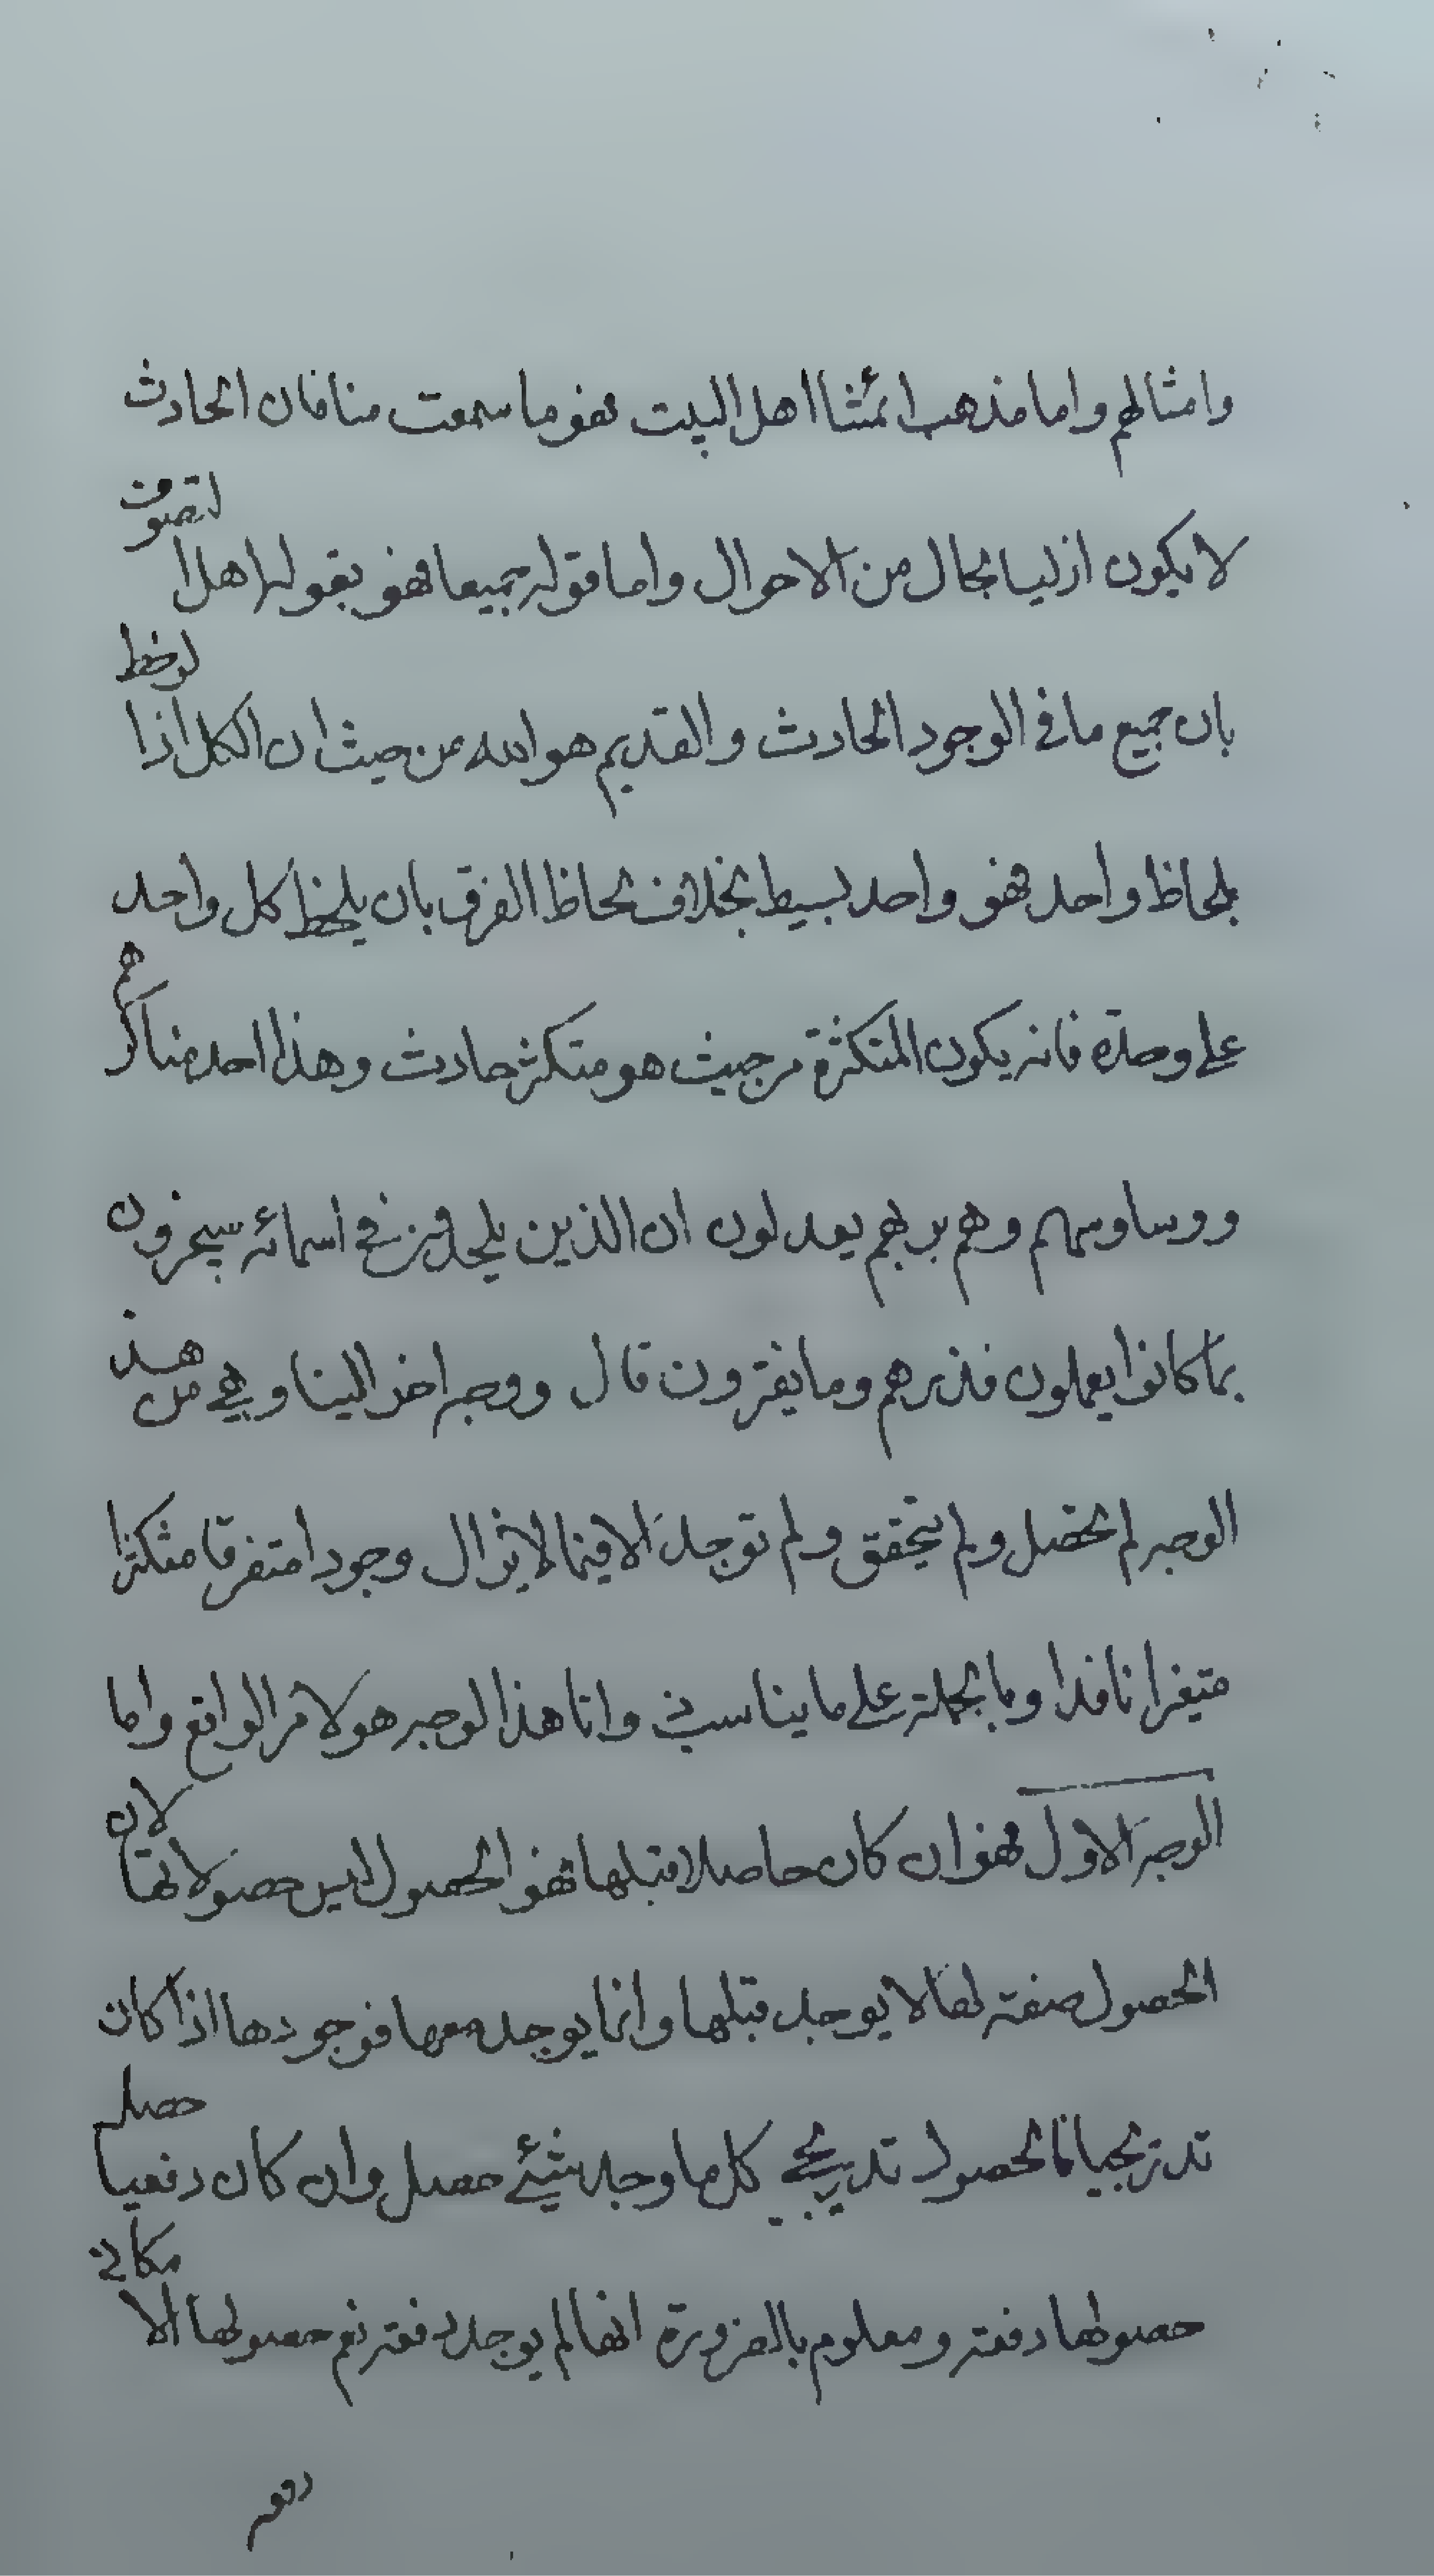 وامثالهم واما مذهب ائمتنا اهل البيت فهو ما سمعت منا فان الحادث
لا يكون ازليا بحال من الاحوال واما قوله جميعا فهو يقوله اهل التصوف
بان جميع ما في الوجود الحادث والقديم هو الله من حيث ان الكل اذا لوحظ
بلحاظ واحد فهو واحد بسيط بخلاف لحاظ الفرق بان يلحظ كل واحد
على وحدة فانه يكون المتكثرة من حيث هو متكثر حادث وهذا احد مناكرهم
ووساوسهم وهم بربهم يعدلون ان الذين يلحدون في اسمائه سيجزون
بما كانوا يعملون فذرهم وما يفترون قال ووجه اخر الينا وهي من هذ
الوجه لم تحصل ولم يتحقق ولم توجد الا فيما لا يزال وجودا متفرقا متكثرا
متغيرا نافدا وبالجملة على ما يناسب وانا هذا الوجه هو لامر الواقع واما
الوجه الاول فهو ان كان حاصلا قبلها فهو الحصول ليس حصولا لها لان
الحصول صفته لها لا يوجد قبلها وانما يوجد معها فوجودها اذا كان
تدريجيا فالحصول تدريجي كل ما وجد شيئ حصل وان كان دفعيا حصل
حصولها دفعة ومعلوم بالضرورة انها لم يوجد دفعة نعم حصولها الامكاني